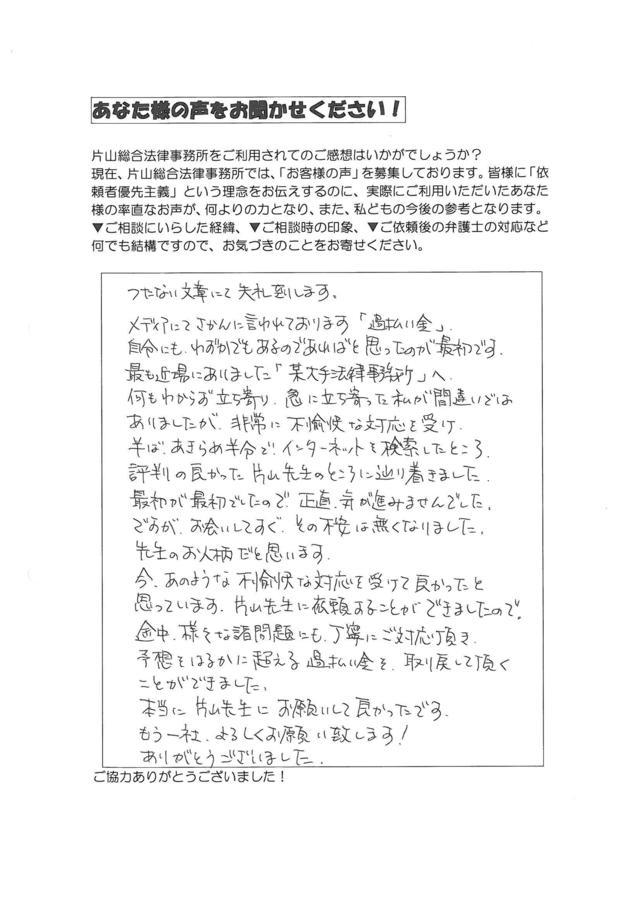 あなた様の声をお聞かせください！
片山総合法律事務所をご利用されてのご感想はいかがでしょうか？
現在、片山総合法律事務所では、「お客様の声」を募集しております。皆様に「依
頼者優先主義」という理念をお伝えするのに、実際にご利用いただいたあなた
様の率直なお声が、何よりの力となり、また、私どもの今後の参考となります。
▼ご相談にいらした経緯、▼ご相談時の印象、▼ご依頼後の弁護士の対応など
何でも結構ですので、お気づきのことをお寄せください。
つたない文章にて失礼致します。
メディアにてさかんに言われております「過払い金」.
自分にも、わずかでもあるのであればと思ったのが最初です.
最も近場にありました「某大手法律事務所」へ.
何もわからず立ち寄り、急に立ち寄った私が間違いでは
ありましたが、非常に不愉快な対応を受け.
半ば、あきらめ半分で、インターネットを検索したところ.
評判の良かった片山先生のところに辿り着きました.
最初が最初でしたので、正直、気が進みませんでした.
ですが、お会いしてすぐ、その不安は無くなりました.
先生のお人柄だと思います.
今、あのような不愉快な対応を受けて良かったと
思っています. 片山先生に依頼することができましたので.
途中、様々な諸問題にも、丁寧にご対応頂き.
予想をはるかに超える過払い金を、取り戻して頂く
ことができました.
本当に片山先生にお願いして良かったです.
もう一社、よろしくお願い致します！
ありがとうございました.
ご協力ありがとうございました！